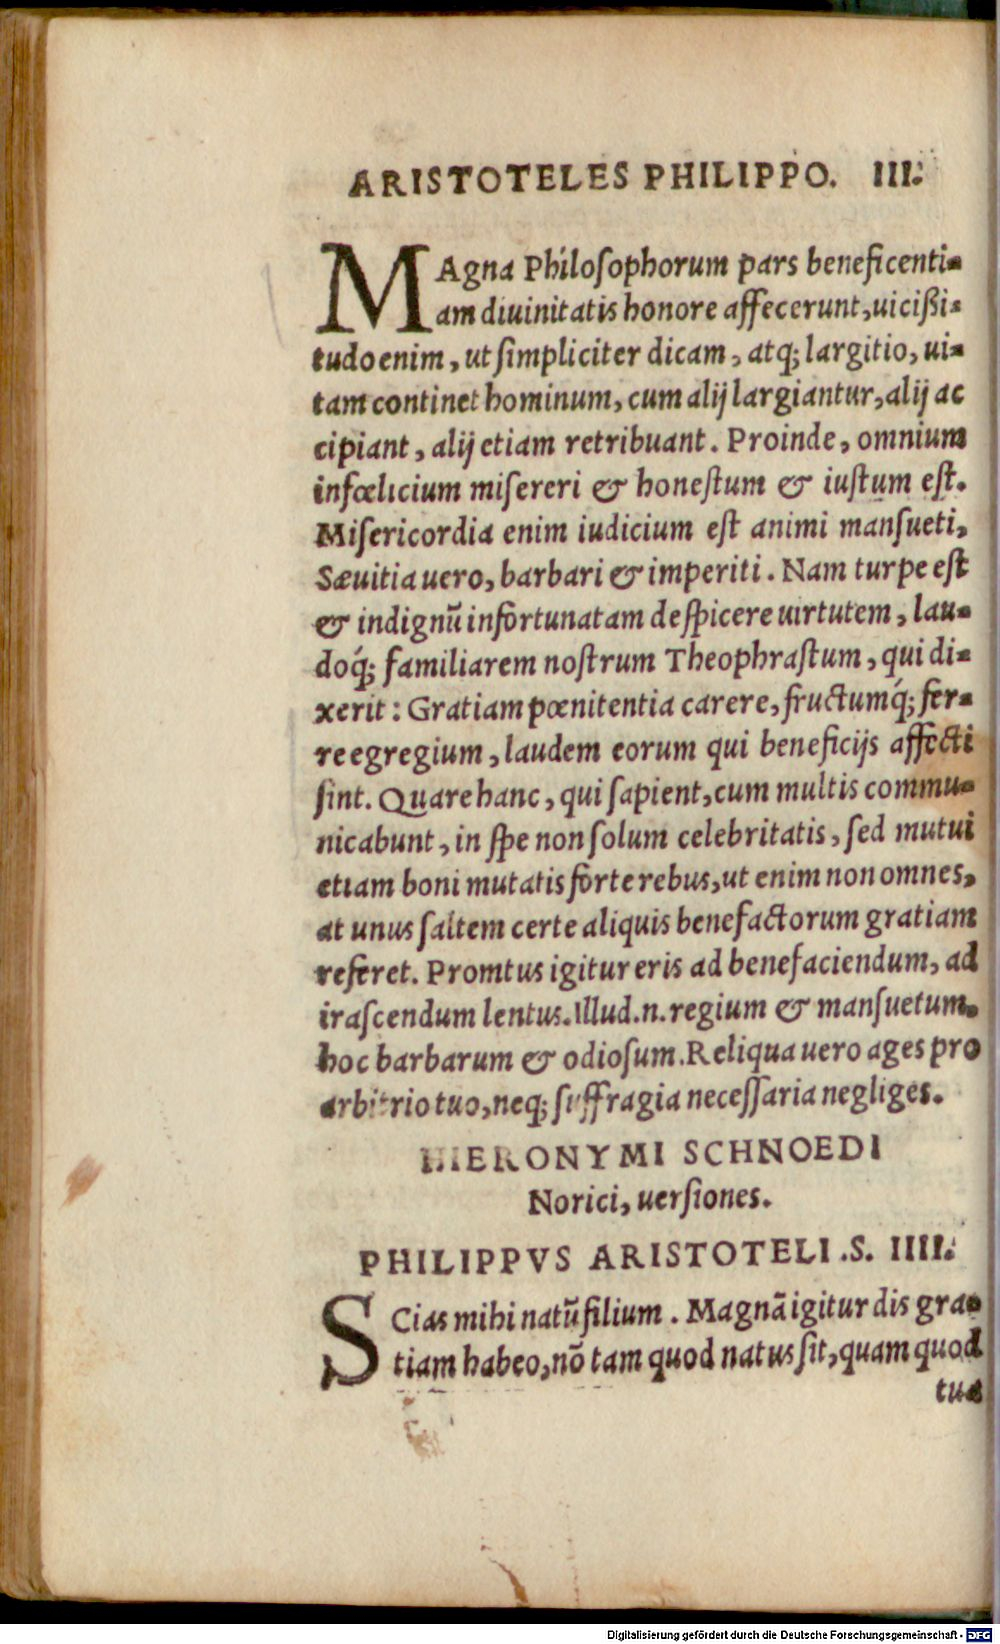 ARISTOTELES PHILIPPO. III.
MAgna Philosophorum pars beneficenti-
am diuinitatis honore affecerunt, uicißi-
tudo enim, ut simpliciter dicam, atq; largitio, ui-
tam continet hominum, cum alij largiantur, alij ac
cipiant, alij etiam retribuant. Proinde, omnium
infœlicium misereri & honestum & iustum est.
Misericordia enim iudicium est animi mansueti,
Sæuitia uero, barbari & imperiti. Nam turpe est
& indignũ infortunatam despicere uirtutem, lau-
doq́; familiarem nostrum Theophrastum, qui di-
xerit: Gratiam pœnitentia carere, fructumq́; fer-
re egregium, laudem eorum qui beneficijs affecti
sint. Quare hanc, qui sapient, cum multis commu-
nicabunt, in spe non solum celebritatis, sed mutui
etiam boni mutatis forte rebus, ut enim non omnes,
at unus saltem certe aliquis benefactorum gratiam
referet. Promtus igitur eris ad benefaciendum, ad
irascendum lentus. Illud.n.regium & mansuetum.
hoc barbarum & odiosum. Reliqua uero ages pro
arbitrio tuo, neq; suffragia necessaria negliges.
HIERONYMI SCHNOEDI
Norici, uersiones.
PHILIPPVS ARISTOTELI .S. IIII.
SCias mihi natũ filium. Magnã igitur dis gra-
tiam habeo, nõ tam quod natus sit, quam quod
tuæ
Digitalisierung gefördert durch die Deutsche Forschungsgemeinschaft - DFG